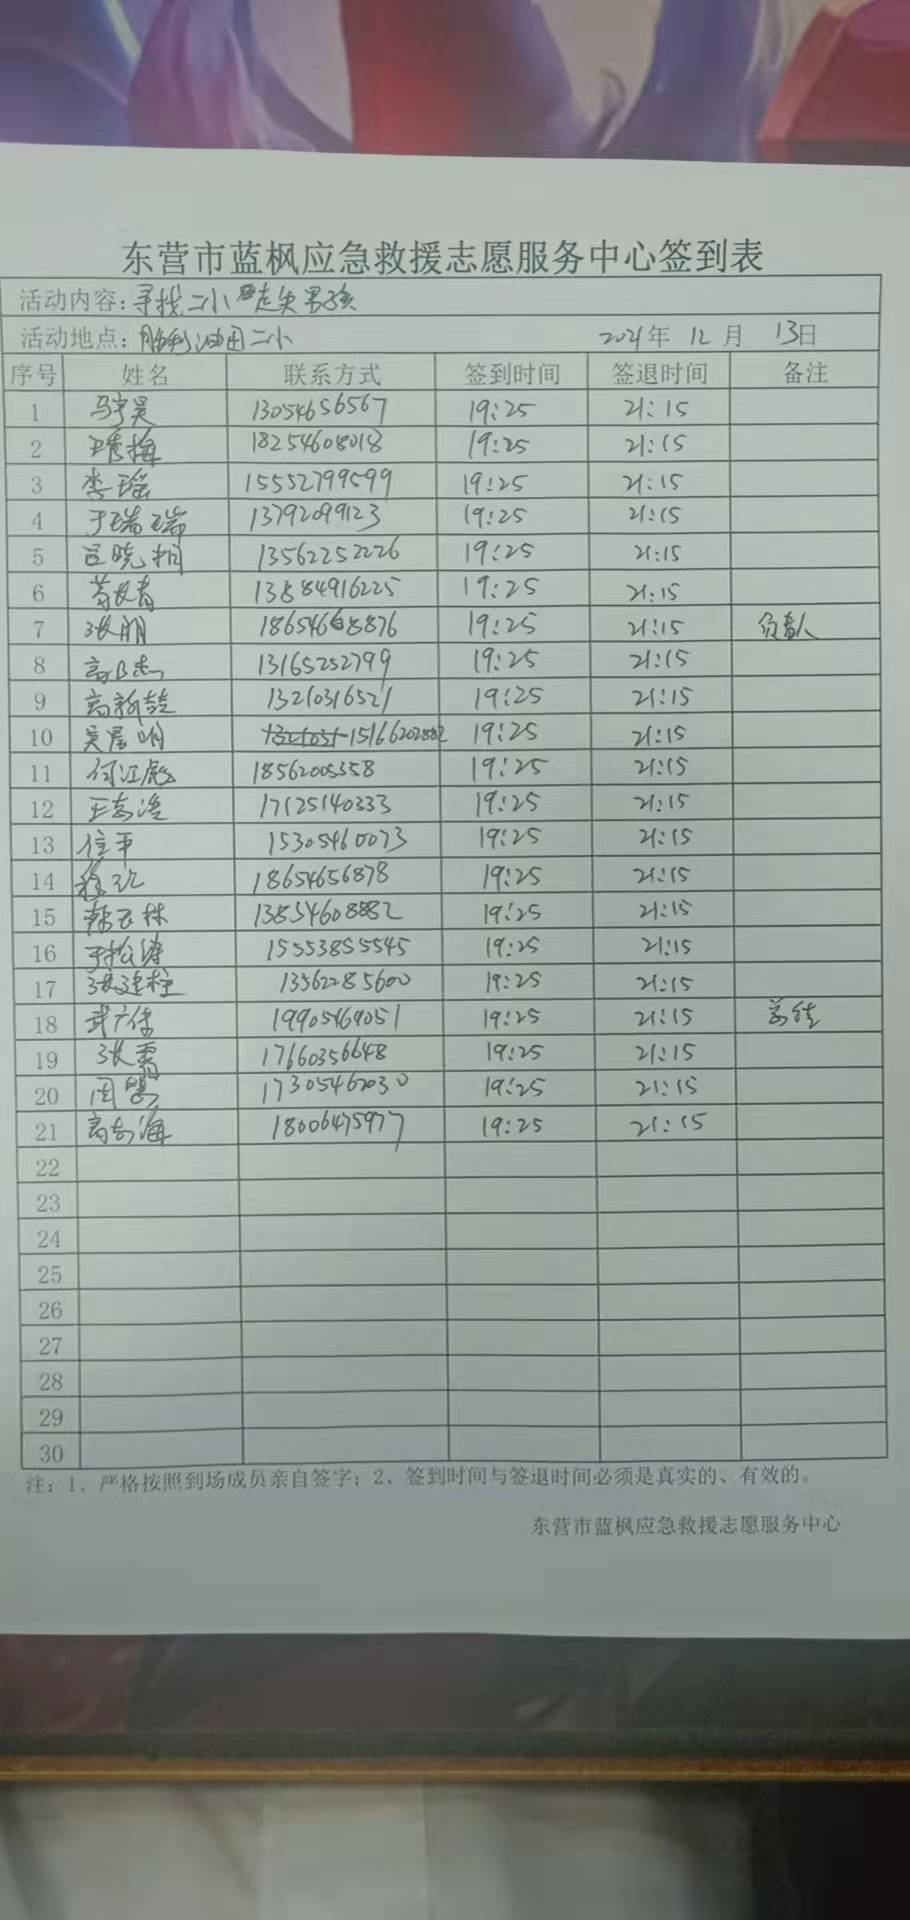 东营市蓝枫应急救援志愿服务中心签到表
活动内容: 寻找二小走失男孩
活动地点: 胜利油田二小 2021年 12月 13日
序号 姓名 联系方式 签到时间 签退时间 备注
1 马宇昊 13054656567 19:25 21:15
2 王秀梅 18254608018 19:25 21:15
3 李瑶 15552799599 19:25 21:15
4 于瑞瑞 13792099123 19:25 21:15
5 吕晓桐 13562252226 19:25 21:15
6 13884916225 19:25 21:15
7 张朋 19:25 21:15 负责人
8 13165252799 19:25 21:15
9 高新喆 13210316521 19:25 21:15
10 吴晨明 15166202882 19:25 21:15
11 何江彪 18562005358 19:25 21:15
12 王志浩 17125140333 19:25 21:15
13 信平 15305460073 19:25 21:15
14 18654656878 19:25 21:15
15 13854608882 19:25 21:15
16 于松涛 15553855545 19:25 21:15
17 张建柱 13562285600 19:25 21:15
18 19905469051 19:25 21:15
19 张霄 17660356648 19:25 21:15
20 周 17305462030 19:25 21:15
21 高志海 18006475977 19:25 21:15
22
23
24
25
26
27
28
29
30
注: 1、严格按照到场成员亲自签字; 2、签到时间与签退时间必须是真实的、有效的。
东营市蓝枫应急救援志愿服务中心